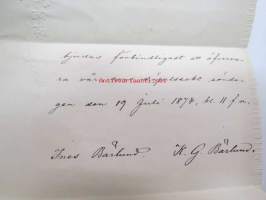 bjudas förbindligast att öfvervara
vår vigselakt sönda-
gen den 19 Juli 1874, kl. 11 f.m.
Ines Bärlund. K. G. Bärlund.